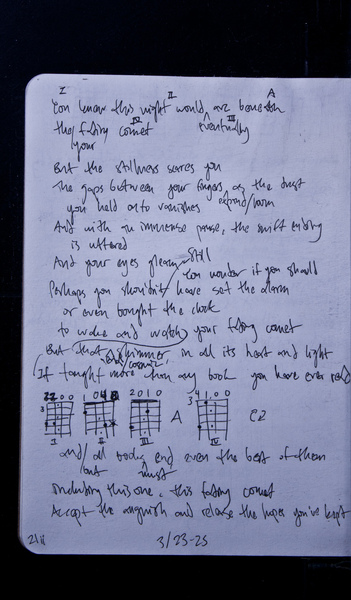 I II A
You know this night would, are beneath
IV eventually III
the falling comet
your
But the stillness scares you
The gaps between your fingers as the dust
you held onto vanishes
And with an immense pause, the swift ending
is uttered
And your eyes gleam Still
You wonder if you should
Perhaps you shouldn't have set the alarm
or even bought the clock
to wake and watch your falling comet
But that shimmer, in all its heat and light
comet
It taught more than any book you have ever read
2 0 1 0
3 3 4 1 0 0
A
I II III IV
and/all books end even the best of them
but must
including this one, this falling comet
Accept the anguish and release the hopes you've kept
3/23-25